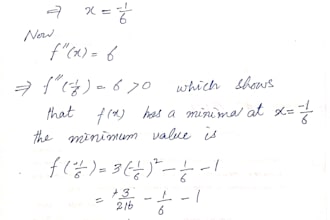 ⇒ x = -1/6
Now
f''(x) = 6
⇒ f''(-1/6) = 6 > 0 which shows
that f(x) has a minima at x = -1/6
the minimum value is
f(-1/6) = 3(-1/6)² - 1/6 - 1
= +3/216 - 1/6 - 1